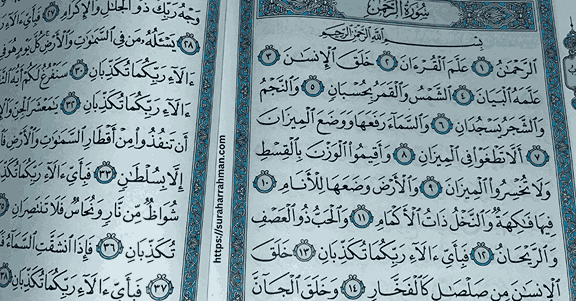 سُورَةُ الرَّحْمَٰن
بِسْمِ اللَّهِ الرَّحْمَٰنِ الرَّحِيمِ
الرَّحْمَٰنُ ١ عَلَّمَ الْقُرْءَانَ ٢ خَلَقَ الْإِنسَٰنَ ٣
عَلَّمَهُ الْبَيَانَ ٤ الشَّمْسُ وَالْقَمَرُ بِحُسْبَانٍ ٥ وَالنَّجْمُ
وَالشَّجَرُ يَسْجُدَانِ ٦ وَالسَّمَآءَ رَفَعَهَا وَوَضَعَ الْمِيزَانَ
٧ أَلَّا تَطْغَوْا فِي الْمِيزَانِ ٨ وَأَقِيمُوا الْوَزْنَ بِالْقِسْطِ
وَلَا تُخْسِرُوا الْمِيزَانَ ٩ وَالْأَرْضَ وَضَعَهَا لِلْأَنَامِ ١٠
فِيهَا فَٰكِهَةٌ وَالنَّخْلُ ذَاتُ الْأَكْمَامِ ١١ وَالْحَبُّ ذُو الْعَصْفِ
وَالرَّيْحَانُ ١٢ فَبِأَيِّ ءَالَآءِ رَبِّكُمَا تُكَذِّبَانِ ١٣ خَلَقَ
الْإِنسَٰنَ مِن صَلْصَٰلٍ كَالْفَخَّارِ ١٤ وَخَلَقَ الْجَآنَّ
وَجْهُ رَبِّكَ ذُو الْجَلَٰلِ وَالْإِكْرَامِ ٢٧ فَبِأَيِّ
٢٨ يَسْـَٔلُهُ مَن فِي السَّمَٰوَٰتِ وَالْأَرْضِ كُلَّ يَوْمٍ هُوَ فِي
ءَالَآءِ رَبِّكُمَا تُكَذِّبَانِ ٣٠ سَنَفْرُغُ لَكُمْ أَيُّهَ
ءَالَآءِ رَبِّكُمَا تُكَذِّبَانِ ٣٢ يَٰمَعْشَرَ الْجِنِّ
أَن تَنفُذُوا مِنْ أَقْطَارِ السَّمَٰوَٰتِ وَالْأَرْضِ
إِلَّا بِسُلْطَٰنٍ ٣٣ فَبِأَيِّ ءَالَآءِ رَبِّكُمَا
شُوَاظٌ مِّن نَّارٍ وَنُحَاسٌ فَلَا تَنتَصِرَانِ ٣٥
تُكَذِّبَانِ ٣٦ فَإِذَا انشَقَّتِ السَّمَآءُ
٣٧ فَبِأَيِّ ءَالَآءِ رَبِّكُمَا تُكَذِّبَانِ ٣٨
https://suraharrahman.com